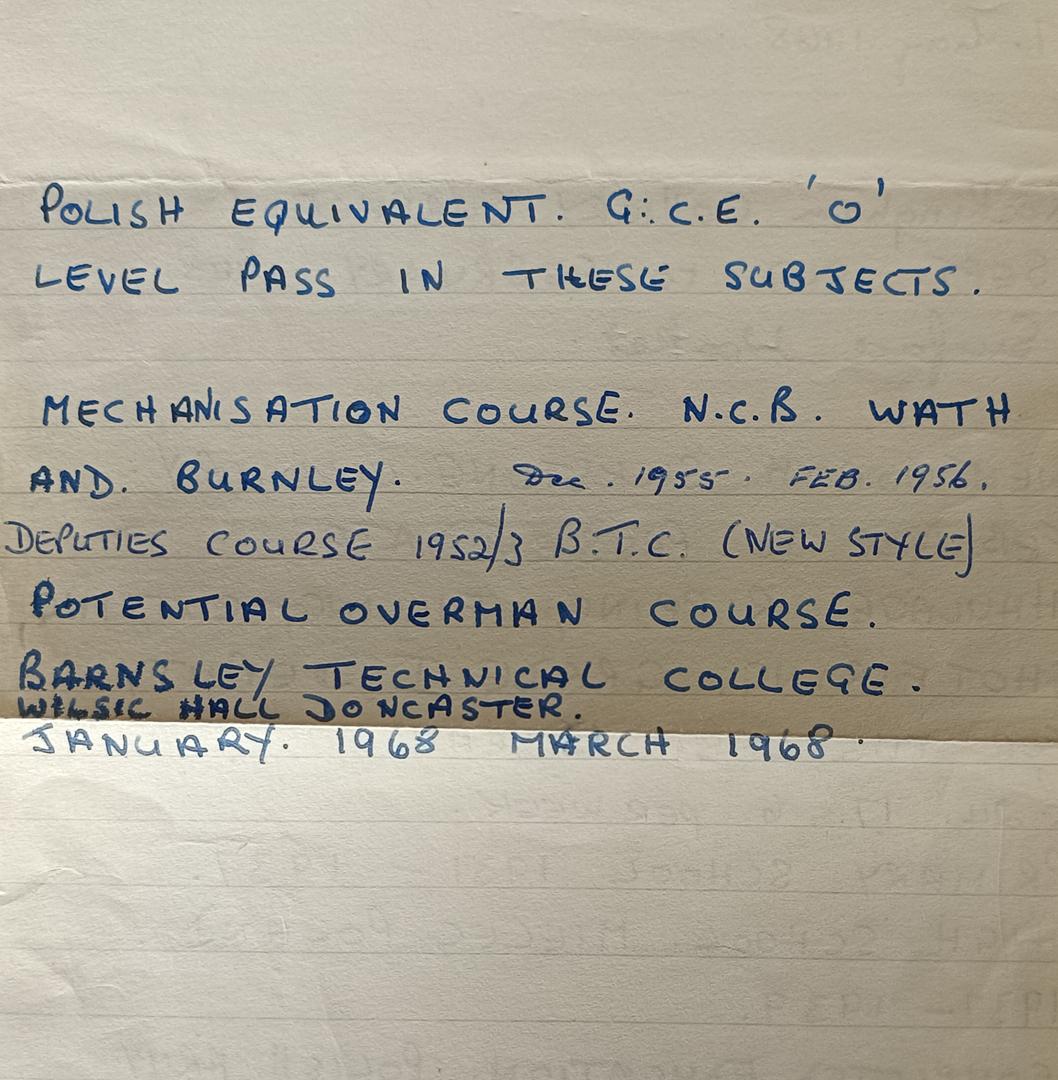 POLISH EQUIVALENT. G.C.E. 'O'
LEVEL PASS IN THESE SUBJECTS.
MECHANISATION COURSE. N.C.B. WATH
AND. BURNLEY. Dec. 1955. FEB. 1956.
DEPUTIES COURSE 1952/3 B.T.C. (NEW STYLE)
POTENTIAL OVERMAN COURSE.
BARNSLEY TECHNICAL COLLEGE.
WILSIC HALL DONCASTER.
JANUARY. 1968 MARCH 1968.